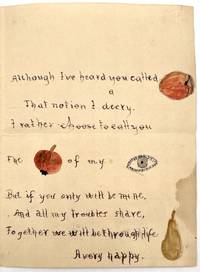 Although I've heard you called
a
That notion I decry.
I rather choose to call you
The of my
But if you only will be mine,
And all my troubles share,
Together we will be through life
A very happy.